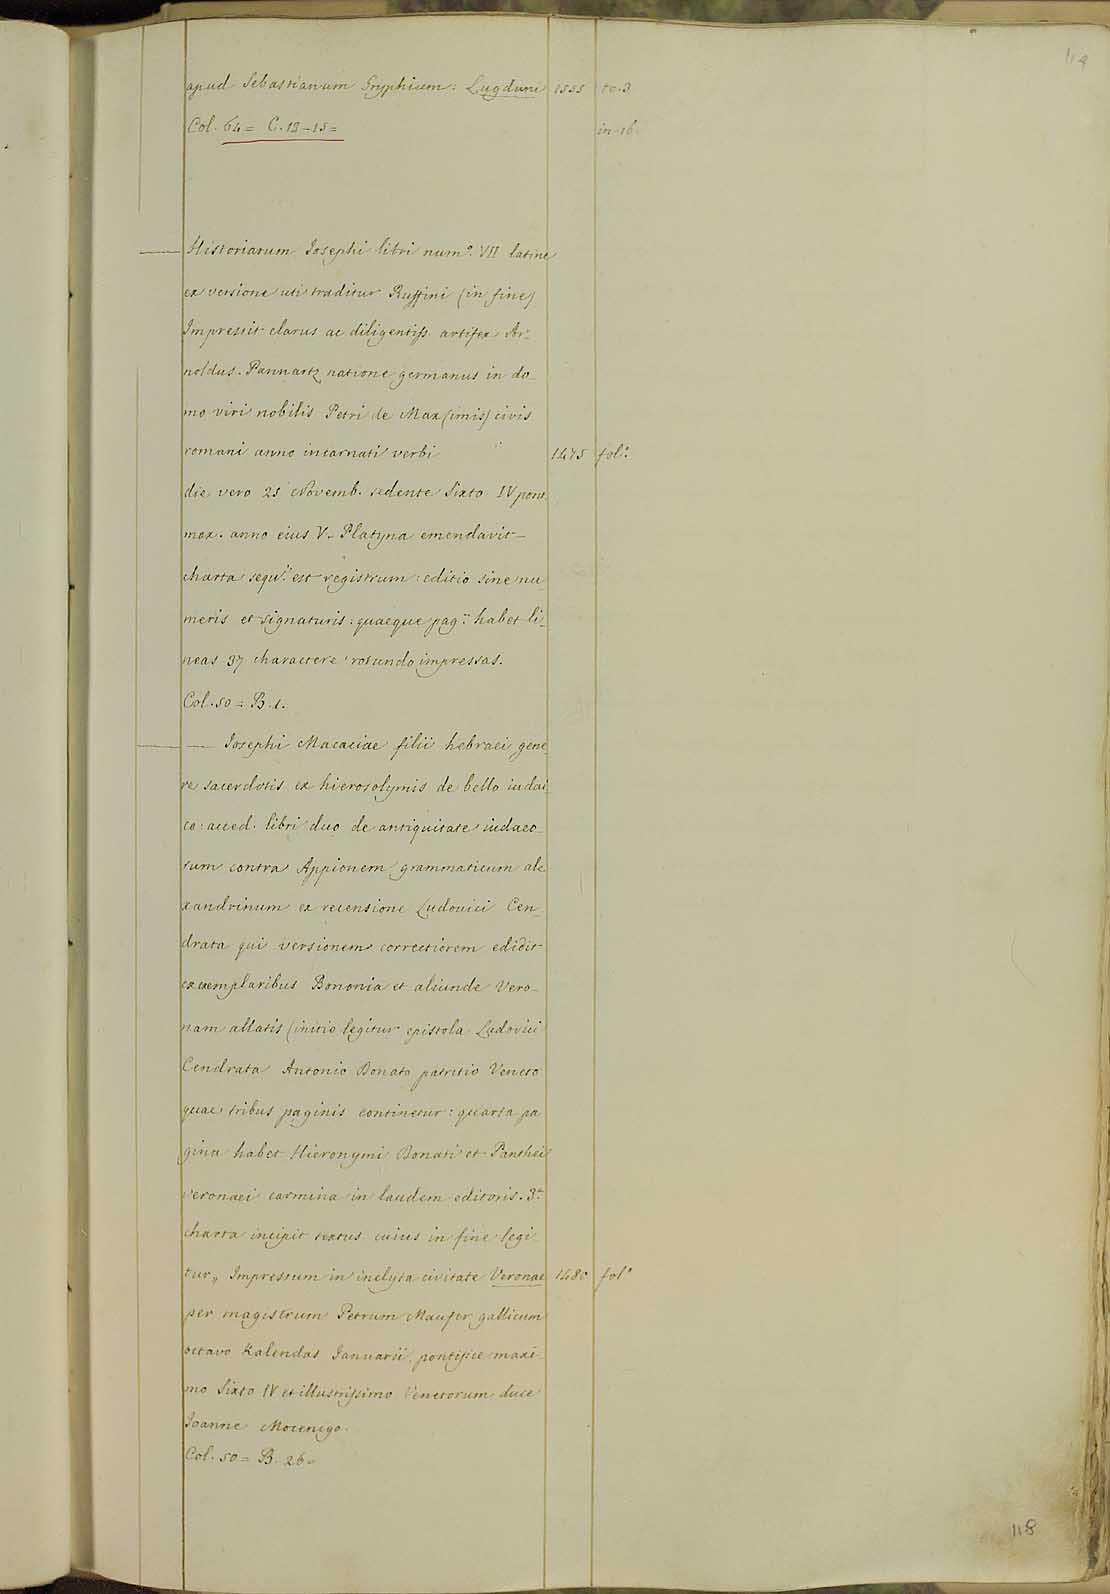 114
apud Sebastianum Gryphium: Lugduni 1555 to.3
Col. 64= C.13-15= in-16.
Historiarum Josephi libri num.° VII latine
ex versione uti traditur Ruffini (in fine)
Impressit clarus ac diligentiss. artifex Ar-
noldus. Pannartz natione germanus in do-
mo viri nobilis Petri de Max(imis) civis
romani anno incarnati verbi 1475 fol.°
die vero 25 Novemb. sedente Sixto IV pont.
max. anno eius V. Platyna emendavit-
charta sequ. est registrum: editio sine nu-
meris et signaturis: quaeque pag. habet li-
neas 37 charactere rotundo impressas.
Col. 50= B.1.
— Josephi Macaciae filii hebraei gene
re sacerdotis ex hierosolymis de bello iudai-
co: acced. libri duo de antiquitate iudaeo-
rum contra Appionem grammaticum ale
xandrinum ex recensione Ludovici Cen-
drata qui versionem correctiorem edidit
ex exemplaribus Bononia et aliunde Vero-
nam allatis (initio legitur epistola Ludovici
Cendrata Antonio Donato patritio Veneto
quae tribus paginis continetur: quarta pa
gina habet Hieronymi Donati et Panthei
veronaei carmina in laudem editoris. 3.a
charta incipit textus cuius in fine legi-
tur,, Impressum in inclyta civitate Veronae 1480 fol°
per magistrum Petrum Maufer gallicum
octavo Kalendas Januarii, pontifice maxi-
mo Sixto IV et illustrissimo Venetorum duce
Joanne Mocenigo.
Col. 50= B. 26=
118